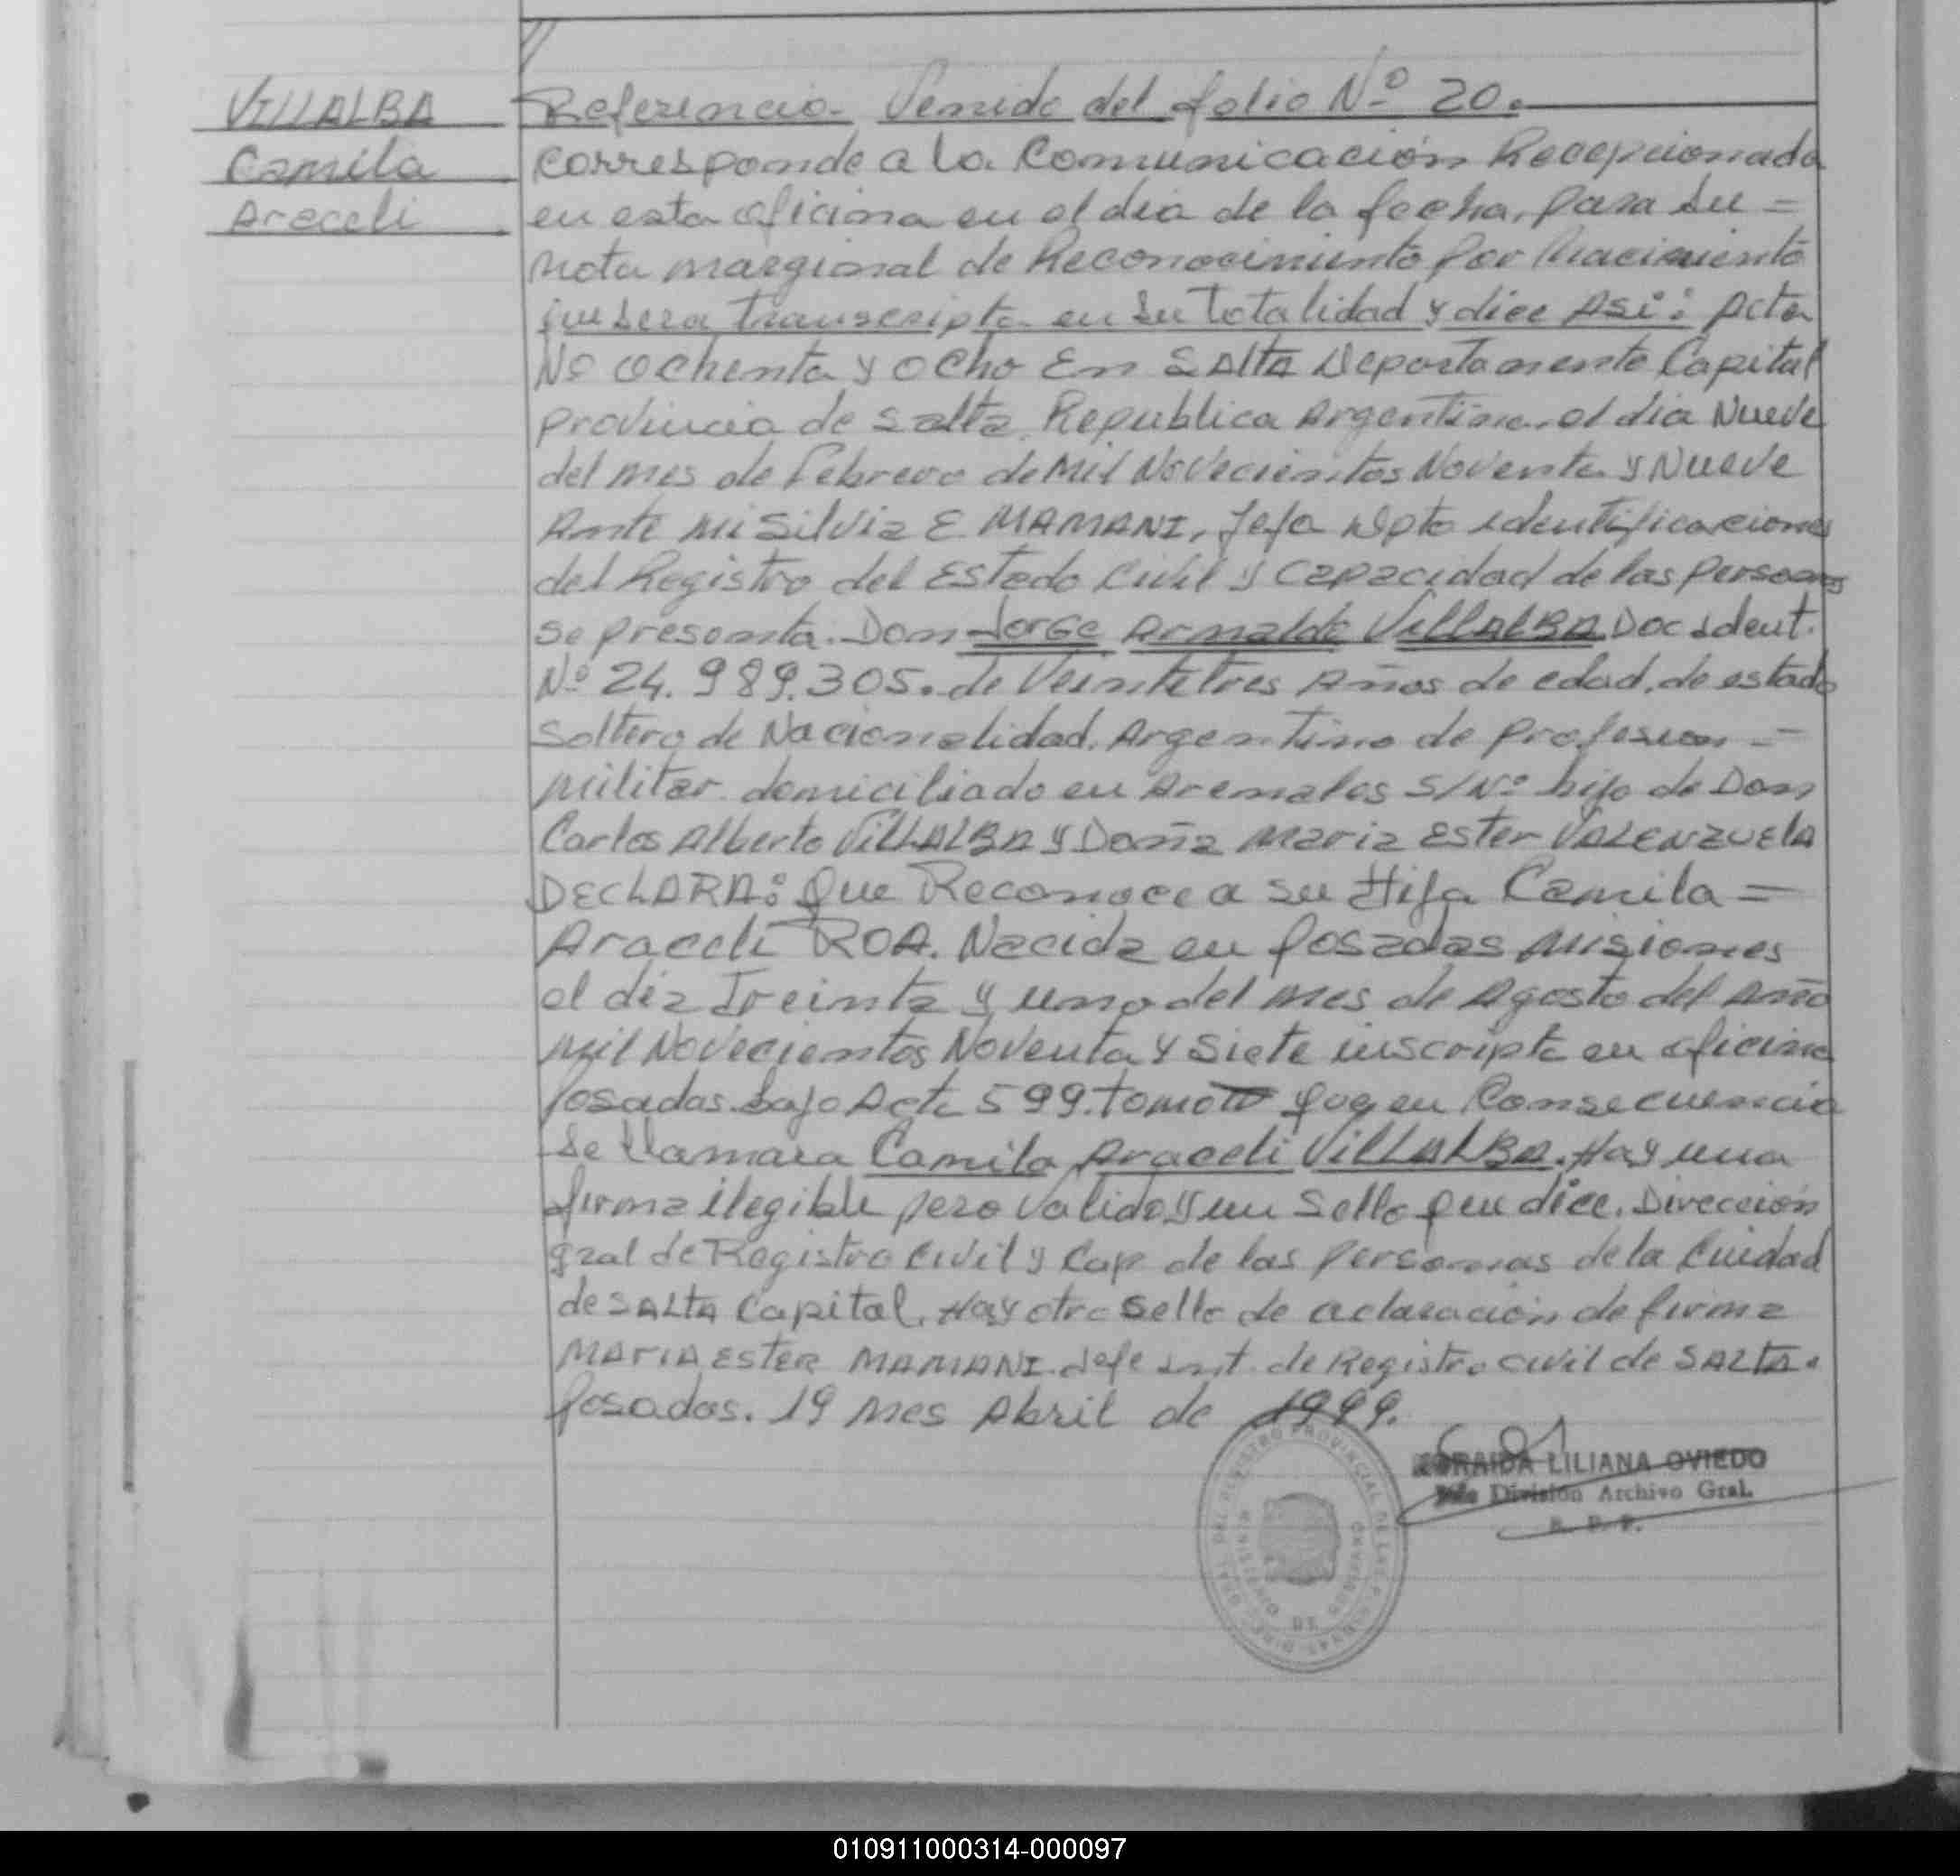 VILLALBA
Camila
Araceli
Referencia. Venido del folio Nº 20.
Corresponde a la Comunicación Recepcionada
en esta oficina en el dia de la fecha, para su =
Nota marginal de Reconocimiento por Nacimiento
que sera transcripta en su totalidad y dice Asi: Acta
Nº ochenta y ocho En SALTA Departamento Capital
provincia de salta, Republica Argentina, el dia Nueve
del mes de Febrero de Mil Novecientos Noventa y Nueve
Ante mi Silvia E MAMANI, Jefa Dpto identificaciones
del Registro del Estado Civil y Capacidad de las personas
se presenta. Don Jorge Arnaldo VILLALBA Doc ident.
Nº 24.989.305. de Veintetres Años de edad, de estado
Soltero de Nacionalidad, Argentino de profesion =
militar domiciliado en Arenales S/Nº hijo de Don
Carlos Alberto VILLALBA y Doña Maria Ester VALENZUELA
DECLARA: Que Reconoce a su Hija Camila =
Araceli ROA. Nacida en Posadas Misiones
el dia Treinta y uno del mes de Agosto del Año
Mil Novecientos Noventa y Siete inscripta en oficina
Posadas bajo Acta 599. tomo que en Consecuencia
se llamara Camila Araceli VILLALBA. Hay una
firma ilegible pero valida y un Sello que dice. Dirección
gral de Registro Civil y Cap de las Personas de la Cuidad
de SALTA Capital. Hay otro Sello de aclaración de firma
MARIA ESTER MAMANI Jefe Int. de Registro civil de SALTA.
Posadas. 19 mes Abril de 1999.
LILIANA OVIEDO
División Archivo Gral.
R. P. P.
010911000314-000097